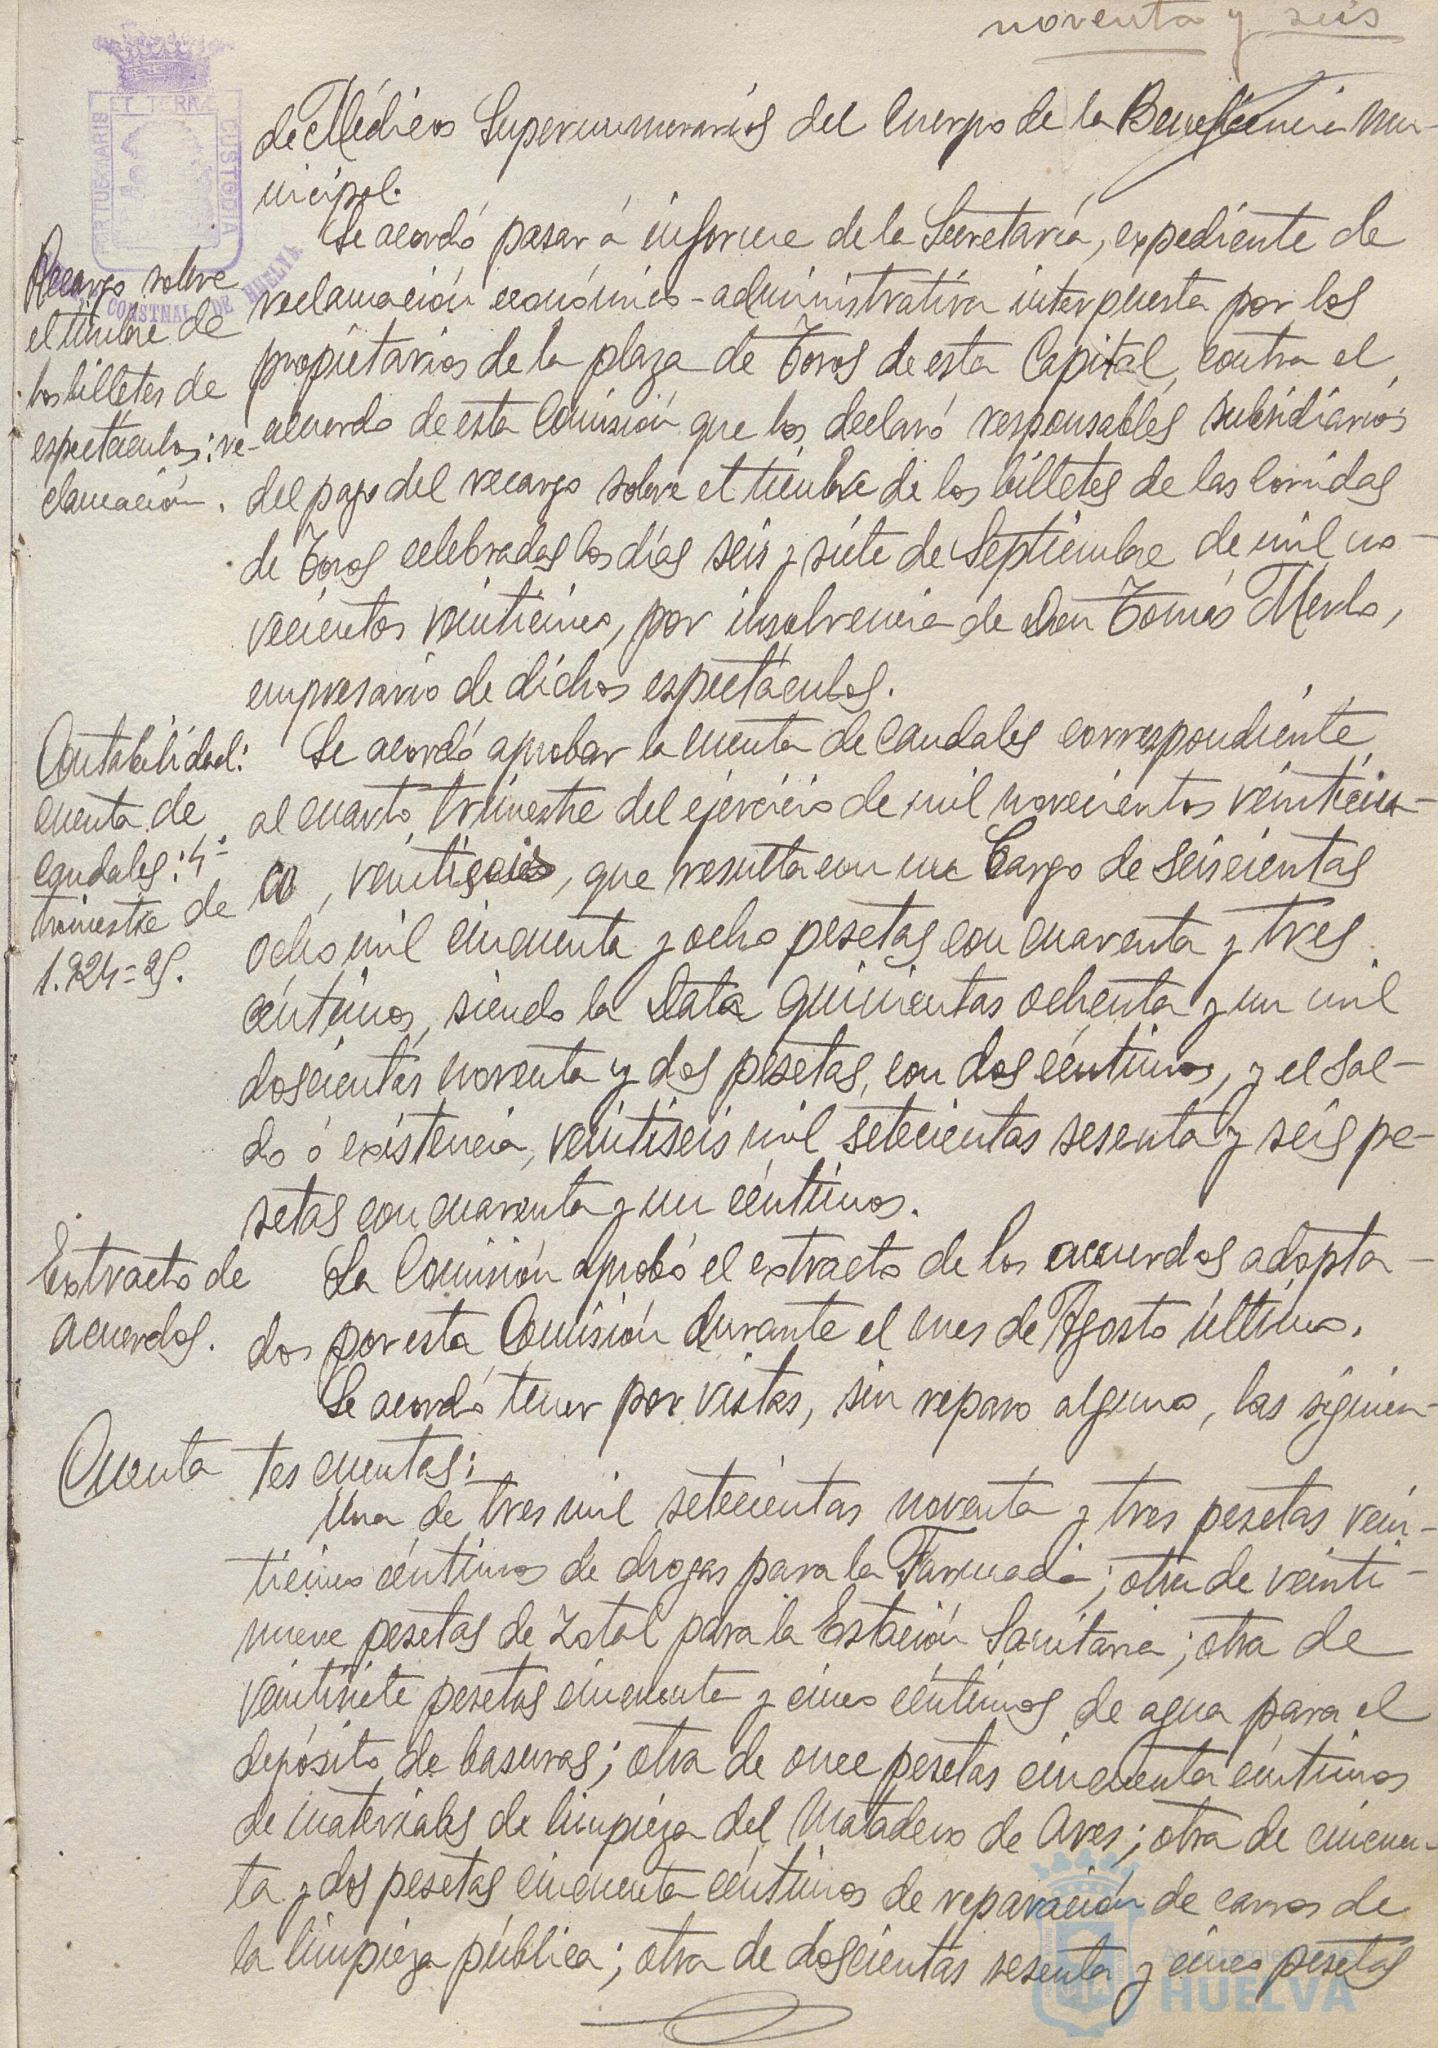 noventa y seis
PORTUS MARIS ET TERRAE CUSTODIA
CONSTNAL DE HUELVA
de Médicos Supernumerarios del Cuerpo de la Beneficencia Mu-
nicipal.
Recargo sobre
el timbre de
los billetes de
espectáculos; re-
clamación.
Se acordó pasar á informe de la Secretaría, expediente de
reclamación económico-administrativa interpuesta por los
propietarios de la plaza de Toros de esta Capital, contra el
acuerdo de esta Comisión que los declaró responsables subsidiarios
del pago del recargo sobre el timbre de los billetes de las corridas
de Toros celebradas los días seis y siete de Septiembre de mil no-
vecientos veinticinco, por insolvencia de Don Tomás Merlo,
empresario de dichos espectáculos.
Contabilidad:
cuenta de
caudales: 4º
trimestre de
1.924=25.
Se acordó aprobar la cuenta de caudales correspondiente
al cuarto trimestre del ejercicio de mil novecientos veinticin-
co, veintiseis, que resulta con un Cargo de seiscientas
ocho mil cincuenta y ocho pesetas con cuarenta y tres
céntimos, siendo la Data quinientas ochenta y un mil
doscientas noventa y dos pesetas, con dos céntimos, y el sal-
do ó existencia, veintiseis mil setecientas sesenta y seis pe-
setas con cuarenta y un céntimos.
Extracto de
acuerdos.
La Comisión aprobó el extracto de los acuerdos adopta-
dos por esta Comisión durante el mes de Agosto último.
Se acordó tener por vistas, sin reparo alguno, las siguien-
Cuenta
tes cuentas:
Una de tres mil setecientas noventa y tres pesetas vein-
ticinco céntimos de drogas para la Farmacia; otra de veinti-
nueve pesetas de Zotal para la Estación Sanitaria; otra de
veintisiete pesetas cincuenta y cinco céntimos de agua para el
depósito de basuras; otra de once pesetas cincuenta céntimos
de materiales de limpieza del Matadero de Aves; otra de cincuen-
ta y dos pesetas cincuenta céntimos de reparación de carros de
la limpieza pública; otra de doscientas sesenta y cinco pesetas
Ayuntamiento de
HUELVA